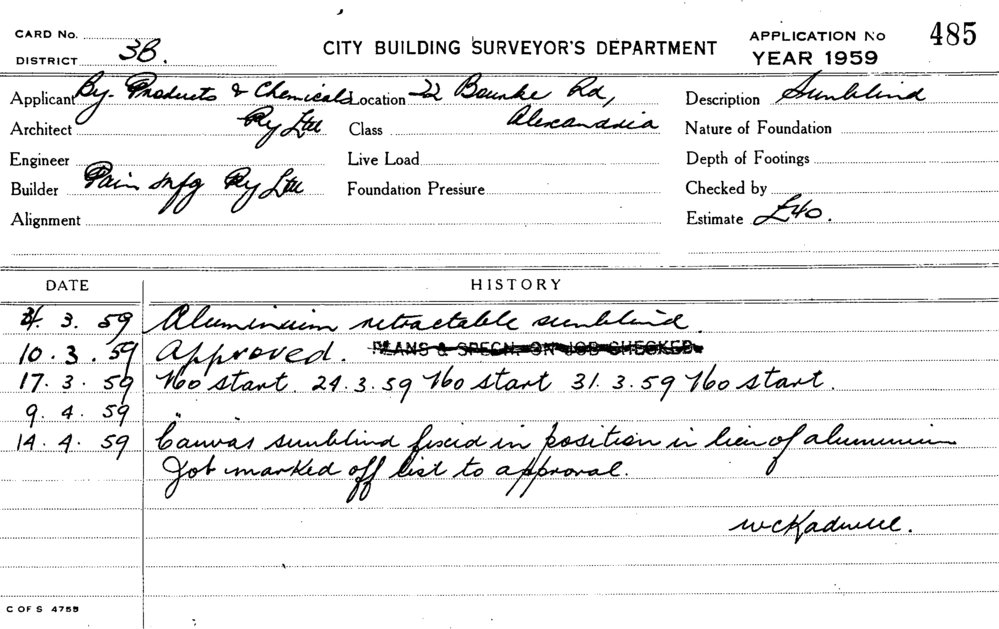 CARD No.
DISTRICT 3B.
CITY BUILDING SURVEYOR'S DEPARTMENT
APPLICATION No 485
YEAR 1959
Applicant By. Products & Chemicals Location 22 Bourke Rd, Description Sunblind
Architect Pty Ltd Class Alexandria Nature of Foundation
Engineer Live Load Depth of Footings
Builder Pain Mfg Pty Ltd Foundation Pressure Checked by
Alignment Estimate £40.
DATE HISTORY
3. 59 Aluminium retractable sunblind.
10. 3. 59 Approved. PLANS & SPECN. ON JOB CHECKED
17. 3. 59 No start. 24. 3. 59 No start 31. 3. 59 No start.
9. 4. 59 "
14. 4. 59 Canvas sunblind fixed in position in lieu of aluminium
Job marked off list to approval.
C OF S 4759